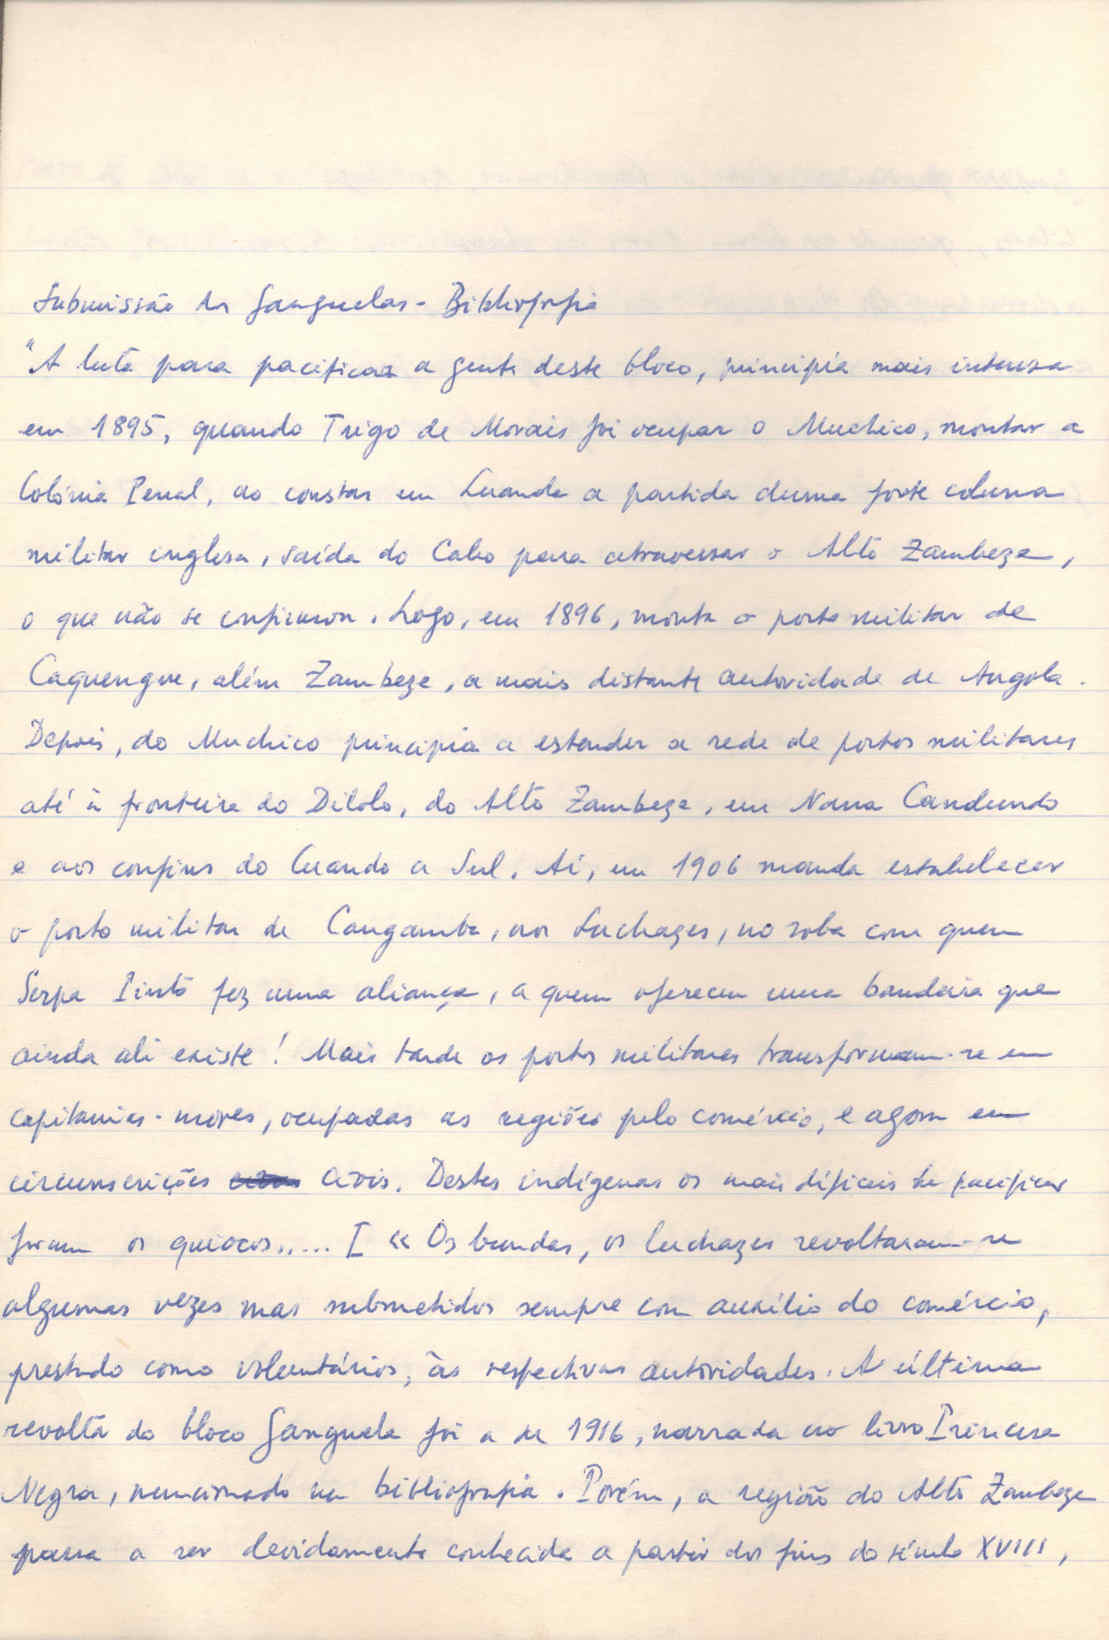 Submissão dos Ganguelas - Bibliografia
"A luta para pacificar a gente deste bloco, principia mais intensa
em 1895, quando Trigo de Morais foi ocupar o Muchico, montar a
Colónia Penal, ao constar em Luanda a partida duma forte coluna
militar inglesa, saída do Cabo para atravessar o Alto Zambeze,
o que não se confirmou. Logo, em 1896, monta o posto militar de
Caquengue, além Zambeze, a mais distante autoridade de Angola.
Depois, do Muchico principia a estender a rede de postos militares
até à fronteira do Dilolo, do Alto Zambeze, em Nana Candundo
e aos confins do Cuando a Sul. Aí, em 1906 manda estabelecer
o posto militar de Cangamba, nos Luchazes, no soba com quem
Serpa Pinto fez uma aliança, a quem ofereceu uma bandeira que
ainda ali existe! Mais tarde os postos militares transformam-se em
capitanias-mores, ocupadas as regiões pelo comércio, e agora em
circunscrições civis. Destes indígenas os mais difíceis de pacificar
foram os quiocos..... I « Os bundas, os luchazes revoltaram-se
algumas vezes mas submetidos sempre com auxílio do comércio,
prestado como voluntários, às respectivas autoridades. A última
revolta do bloco Ganguela foi a de 1916, narrada no livro Princesa
Negra, mencionado na bibliografia. Porém, a região do Alto Zambeze
passa a ser devidamente conhecida a partir dos fins do século XVIII,